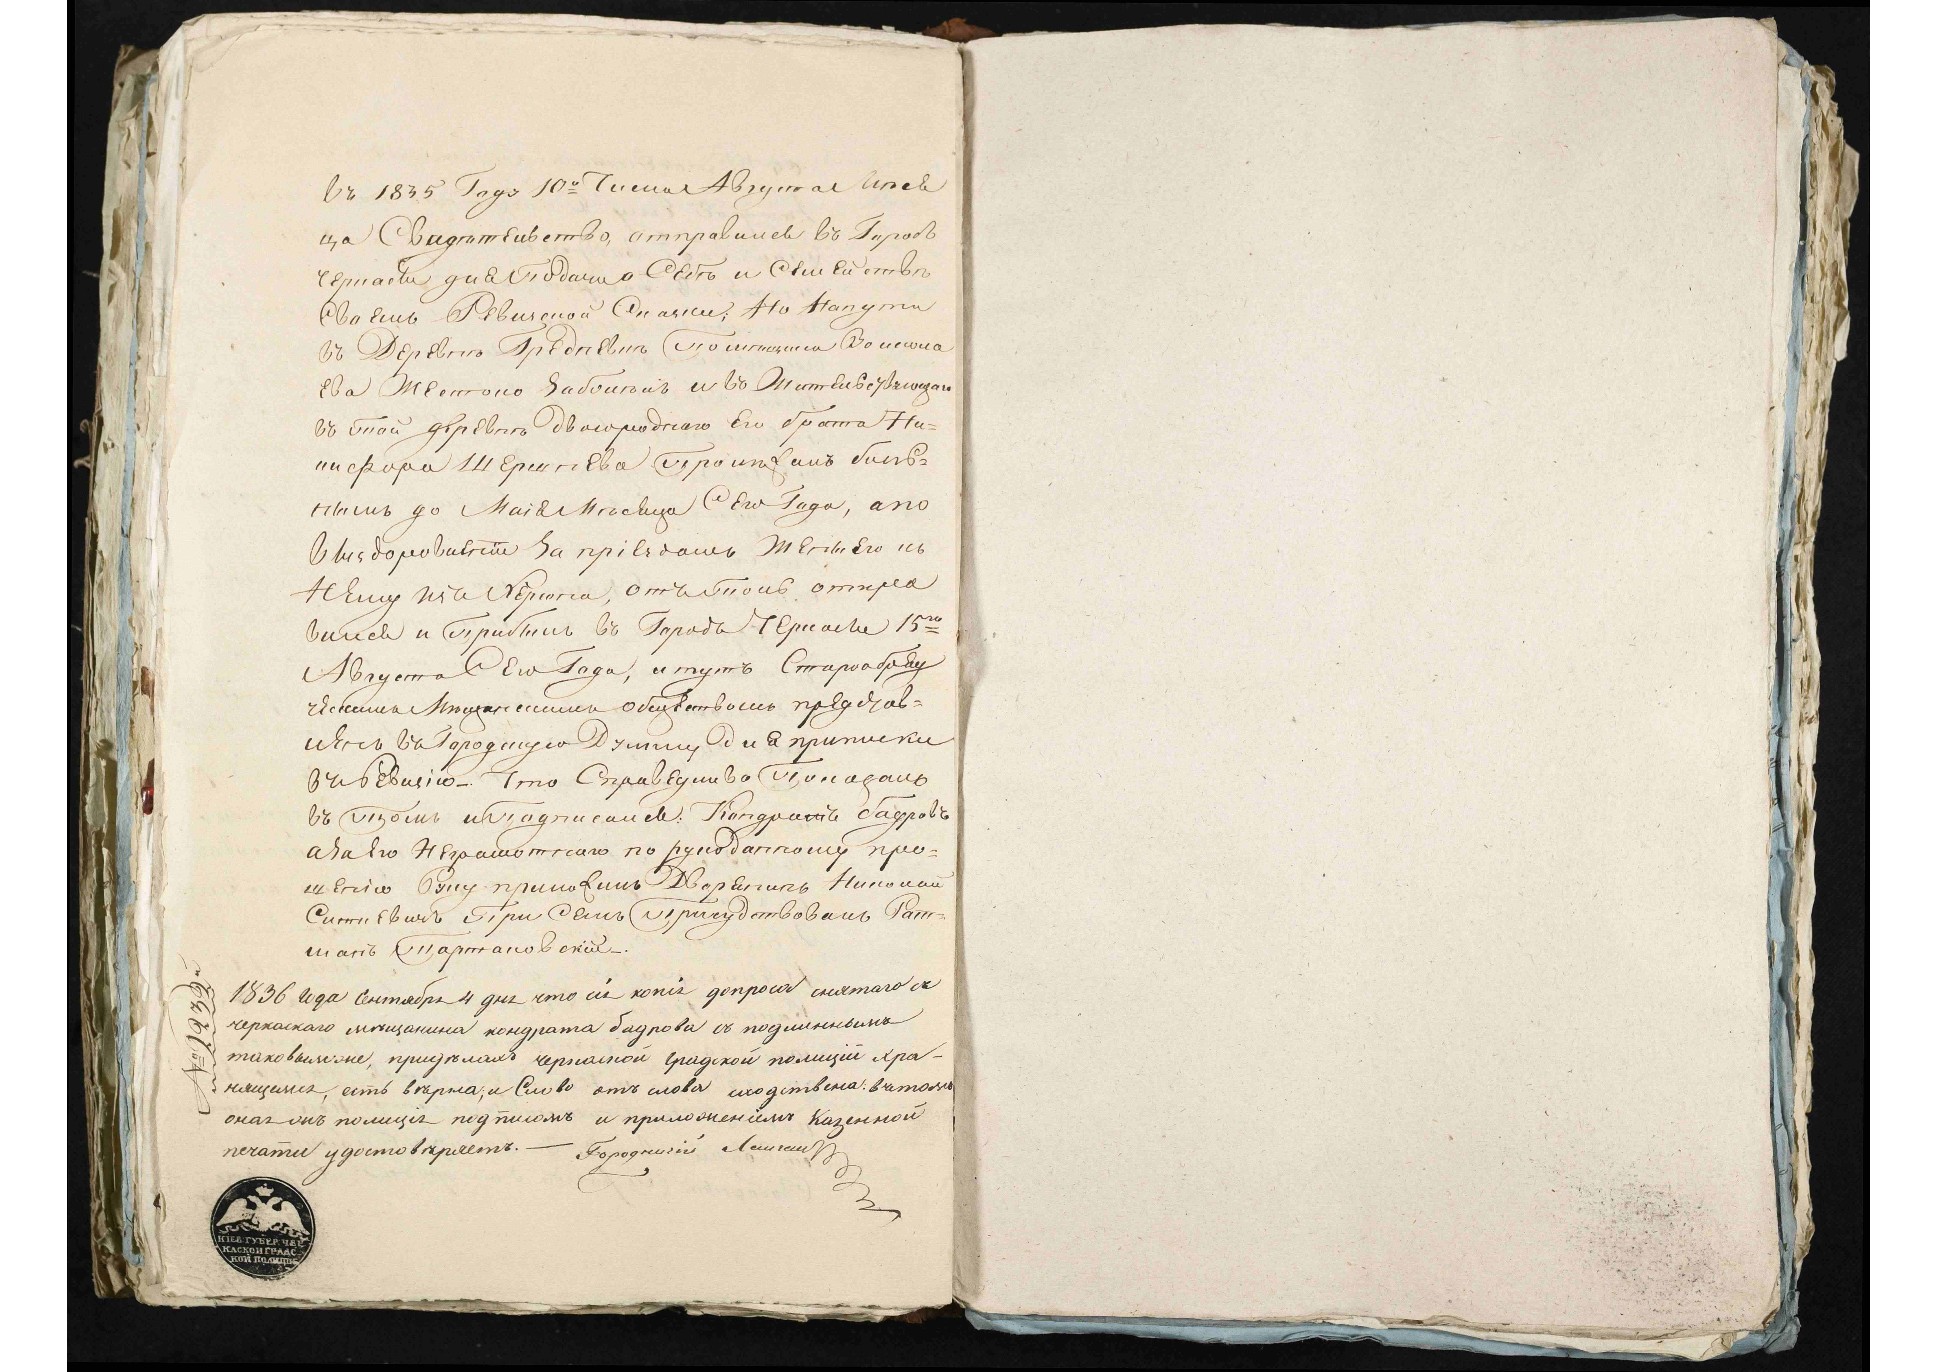 въ 1835 Году 10го Числа Августа Меся
ца Свидѣтельство, отправился въ Городъ
Черкасы для Подачи о Себѣ и Семействѣ
Своемъ Ревизской Сказки; Но Напути
въ Деревнѣ Помѣщика
ева Жестоко Заболѣлъ и въ Жительствующаго
въ той деревнѣ Двоюроднаго Его брата Ни-
кифора Пролежалъ боль-
нымъ до Маія Мѣсяца Сего Года, а по
Выздоровленіи За пріѣздомъ Жены Его къ
Нему изъ отъ толь отпра
вился и Прибылъ въ Городъ Черкасы 15го
Августа Сего Года, и тутъ Старообряд
ческимъ Мѣщанскимъ обществомъ представ-
ленъ въ Городскую Думму Для приписки
въ Ревизію. Что Справедливо Показалъ
въ Томъ и Подписался: Кондратъ бадровъ
а За Его Неграмотнаго по рукоданному про-
шенію Руку приложилъ Дворянинъ Николай
При Семъ Присудствовалъ Рат-
манъ Тарнановскій.
1836 года Сентября 4 дня что сія копія допроса снятаго съ
черкаскаго мѣщанина кондрата бадрова съ подлиннымъ
таковымже, придѣлахъ черкаской градской полиціи хра-
нящимся, есть вѣрна, и Слово отъ слова сходственна: въ томъ
оная полиція подписомъ и приложеніемъ Казенной
печати удостовѣряетъ. — Городничій
№ 1939й
КІЕВ. ГУБЕР. ЧЕР
КАСКОЙ ГРАДС
КОЙ ПОЛИЦІИ